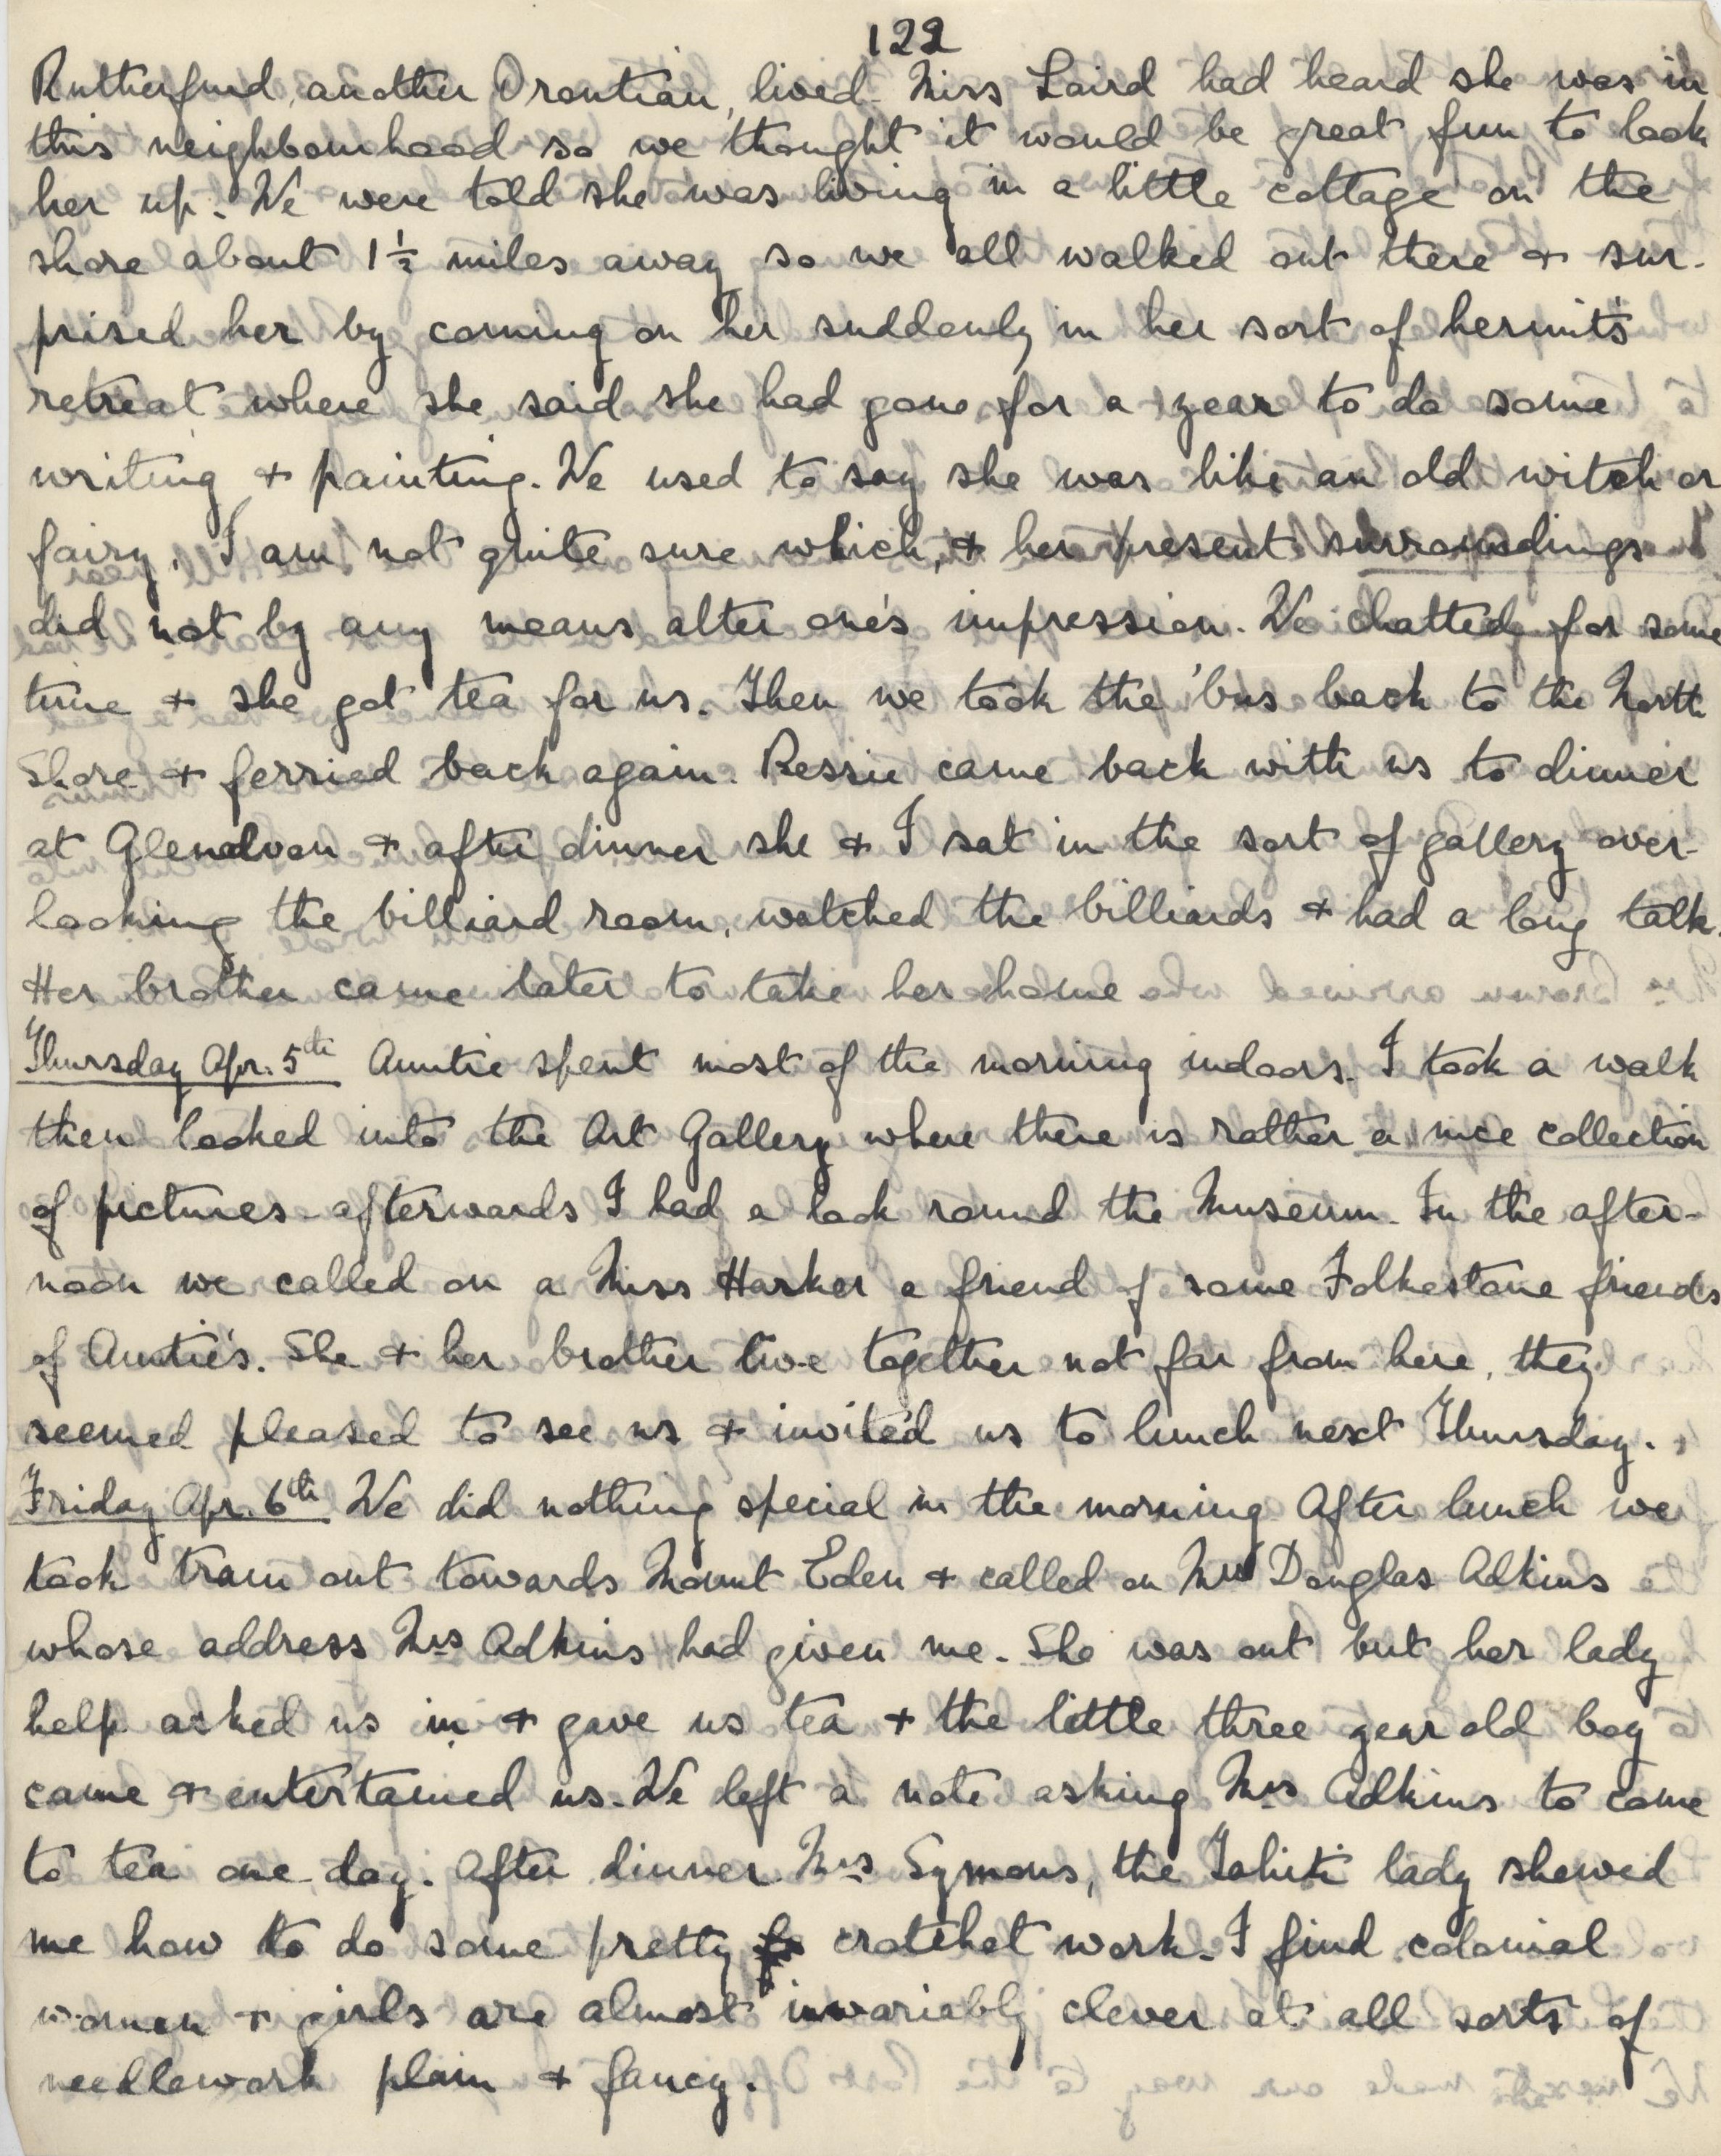 122
Rutherfurd, another Orontian, lived. Miss Laird had heard she was in
this neighbourhood so we thought it would be great fun to look
her up. We were told she was living in a little cottage on the
shore about 1½ miles away so we all walked out there & sur-
prised her by coming on her suddenly in her sort of hermit's
retreat where she said she had gone for a year to do some
writing & painting. We used to say she was like an old witch or
fairy, I am not quite sure which, & her present surroundings
did not by any means alter one's impression. We chatted for some
time & she got tea for us. Then we took the 'bus back to the North
Shore & ferried back again. Bessie came back with us to dinner
at Glenalvon & after dinner she & I sat in the sort of gallery over-
looking the billiard room, watched the billiards & had a long talk.
Her brother came later to take her home
Thursday Apr. 5th Auntie spent most of the morning indoors. I took a walk
then looked into the Art Gallery where there is rather a nice collection
of pictures - afterwards I had a look round the Museum. In the after-
noon we called on a Miss Harker a friend of some Folkestone friends
of Auntie's. She & her brother live together not far from here, they
seemed pleased to see us & invited us to lunch next Thursday.
Friday Apr. 6th We did nothing special in the morning. After lunch we
took tram out towards Mount Eden & called on Mrs Douglas Adkins
whose address Mrs Adkins had given me. She was out but her lady
help asked us in & gave us tea & the little three year old boy
came & entertained us. We left a note asking Mrs Adkins to come
to tea one day. After dinner Mrs Symons, the Tahiti lady shewed
me how to do some pretty crotchet work. I find colonial
women & girls are almost invariably clever at all sorts of
needlework plain & fancy.